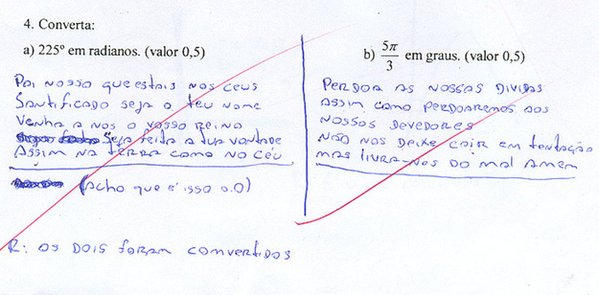 4. Converta:
a) 225º em radianos. (valor 0,5)
Pai nosso que estais nos ceus
Santificado seja o teu nome
Venha a nos o vosso reino
seja feita a tua vontade
Assim na terra como no céu
(Acho que é isso o.O)
b) 5π/3 em graus. (valor 0,5)
Perdoa as nossas dividas
assim como perdoaremos aos
nossos devedores
Não nos deixe cair em tentação
mas livra-nos do mal Amem
R: os dois foram comvertidos